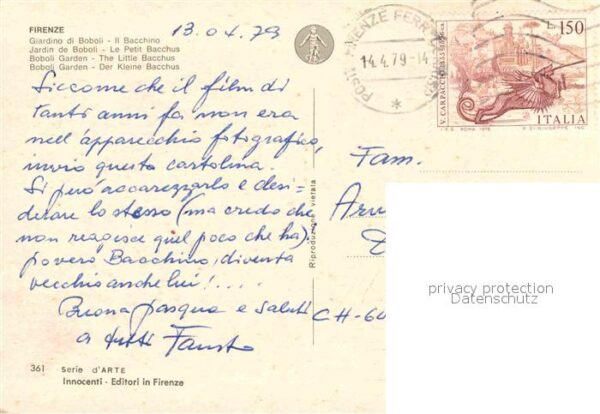 FIRENZE
Giardino di Boboli - Il Bacchino
Jardin de Boboli - Le Petit Bacchus
Boboli Garden - The Little Bacchus
Boboli Garden - Der Kleine Bacchus
13.04.79
Siccome che il film di
tanti anni fa non era
nell'apparecchio fotografico,
invio questa cartolina.
Si può accarezzarlo e desi=
derare lo stesso (ma credo che
non reagisce quel poco che ha).
povero Bacchino, diventa
vecchio anche lui!....
Buona pasqua e saluti
a tutti Fausto
361 Serie d'ARTE
Innocenti - Editori in Firenze
Riproduzione vietata
POSTE FIRENZE FERR
14.4.79-14
L. 150
V. CARPACCIO
ITALIA
I.P.S. ROMA 1976
Fam.
CH-60
privacy protection
Datenschutz